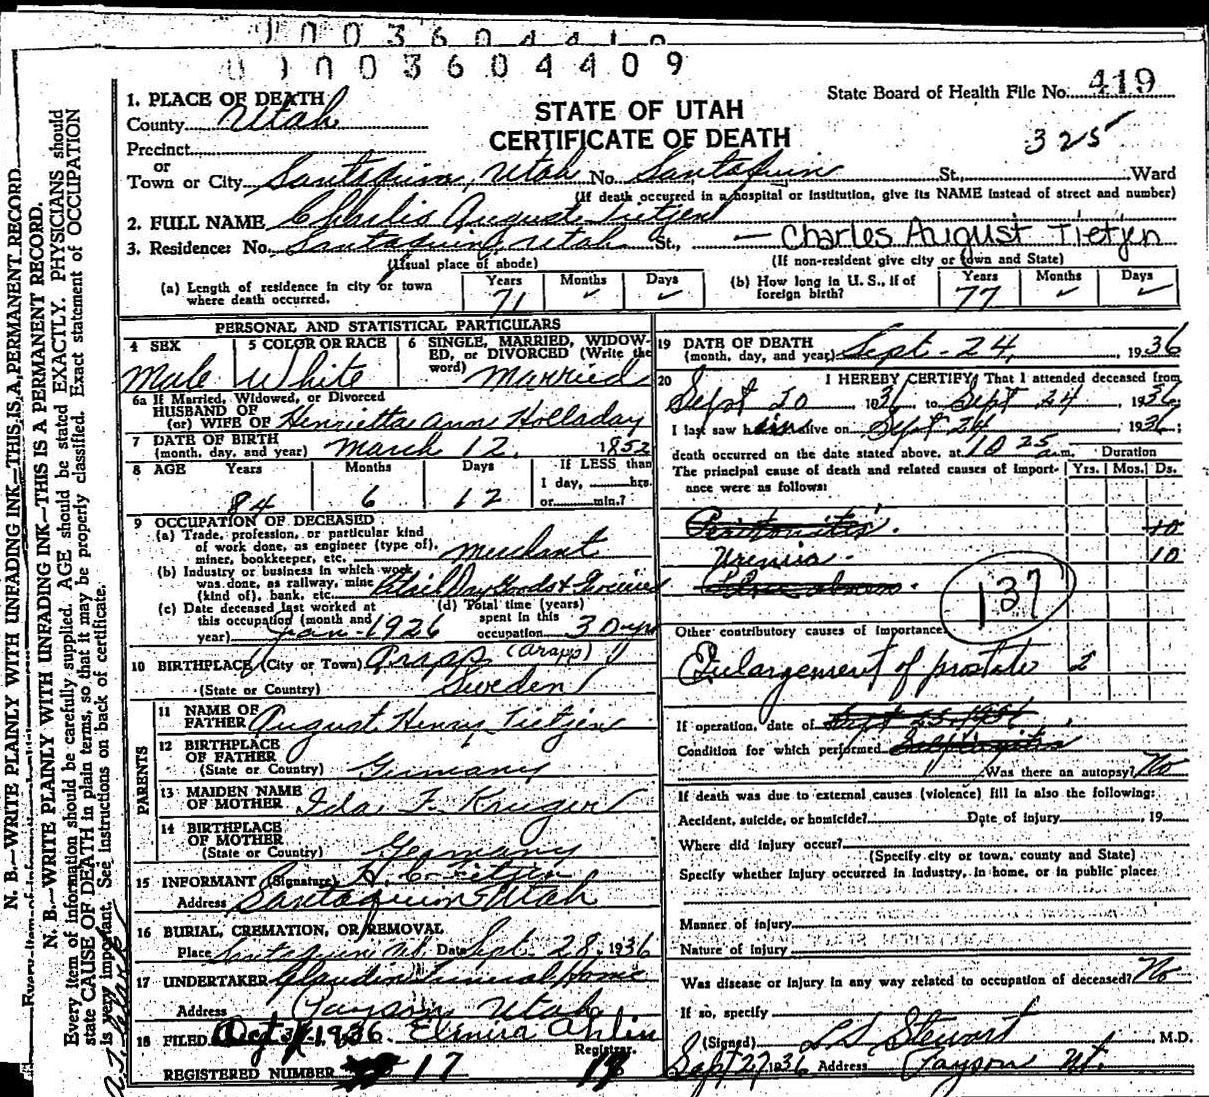 0 0 3 6 0 4 4 0 9
State Board of Health File No. 419
325
STATE OF UTAH
CERTIFICATE OF DEATH
1. PLACE OF DEATH
County Utah
Precinct
or
Town or City Santaquin, Utah No. Santaquin St., Ward
(If death occurred in a hospital or institution, give its NAME instead of street and number)
2. FULL NAME August Tietjen
3. Residence: No. Santaquin, Utah St., — Charles August Tietjen
(Usual place of abode) (If non-resident give city or town and State)
(a) Length of residence in city or town where death occurred. Years 71 Months ✓ Days ✓
(b) How long in U. S., if of foreign birth? Years 77 Months ✓ Days ✓
PERSONAL AND STATISTICAL PARTICULARS
4 SEX Male
5 COLOR OR RACE White
6 SINGLE, MARRIED, WIDOWED, or DIVORCED (Write the word) Married
6a If Married, Widowed, or Divorced
HUSBAND OF
(or) WIFE OF Henrietta Ann Holladay
7 DATE OF BIRTH
(month, day, and year) March 12, 1852
8 AGE Years 84 Months 6 Days 12 If LESS than 1 day, hrs. or min.?
9 OCCUPATION OF DECEASED
(a) Trade, profession, or particular kind
of work done, as engineer (type of),
miner, bookkeeper, etc. Merchant
(b) Industry or business in which work
was done, as railway, mine
(kind of), bank, etc. Retail Dry Goods & Groceries
(c) Date deceased last worked at
this occupation (month and
year) Jan-1926
(d) Total time (years)
spent in this
occupation 30 yrs
10 BIRTHPLACE (City or Town) Arapp (Arapp)
(State or Country) Sweden
PARENTS
11 NAME OF
FATHER August Henry Tietjen
12 BIRTHPLACE
OF FATHER
(State or Country) Germany
13 MAIDEN NAME
OF MOTHER Ida F. Kruger
14 BIRTHPLACE
OF MOTHER
(State or Country) Germany
15 INFORMANT (Signature) H. C. Tietjen
Address Santaquin Utah
16 BURIAL, CREMATION, OR REMOVAL
Place Santaquin Ut. Date Sept. 28, 1936
17 UNDERTAKER Funeral Home
Address Payson Utah
18 FILED 1936. Elmira Ahlin
Registrar.
REGISTERED NUMBER 17
19 DATE OF DEATH
(month, day, and year) Sept-24, 1936
20 I HEREBY CERTIFY, That I attended deceased from
Sept 20 1936 to Sept 24 1936;
I last saw him alive on Sept 24 1936;
death occurred on the date stated above, at 10 25 a.m. Duration
The principal cause of death and related causes of importance were as follows: Yrs. Mos. Ds.
Peritonitis. 10
Uremia. 10
137
Other contributory causes of importance:
Enlargement of prostate 2
If operation, date of
Condition for which performed
Was there an autopsy? No
If death was due to external causes (violence) fill in also the following:
Accident, suicide, or homicide? Date of injury 19
Where did injury occur?
(Specify city or town, county and State)
Specify whether injury occurred in industry, in home, or in public place:
Manner of injury
Nature of injury
Was disease or injury in any way related to occupation of deceased? No
If so, specify
(Signed) L D Stewart M.D.
Sept 27 1936 Address Payson Ut.
N. B.—WRITE PLAINLY WITH UNFADING INK—THIS IS A PERMANENT RECORD.
N. B.—WRITE PLAINLY WITH UNFADING INK—THIS IS A PERMANENT RECORD.
Every item of information should be carefully supplied. AGE should be stated EXACTLY. PHYSICIANS should
state CAUSE OF DEATH in plain terms, so that it may be properly classified. Exact statement of OCCUPATION
is very important. See instructions on back of certificate.